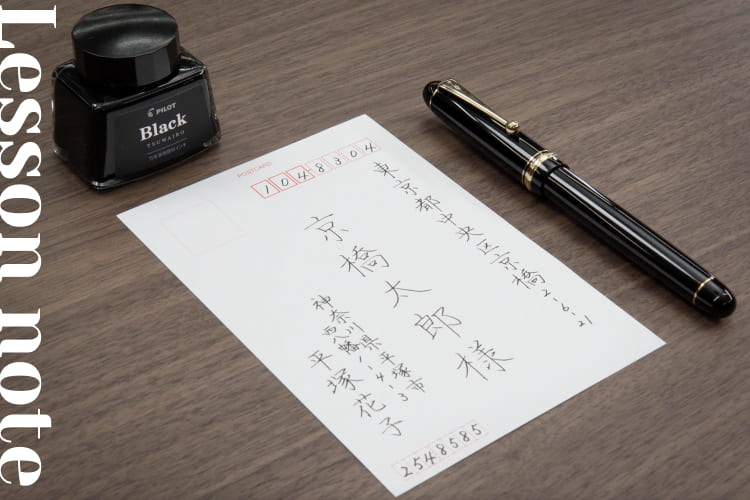 Lesson note
PILOT
Black
TSUWAIRO
POSTCARD
1048304
東京都中央区京橋2-6-21
京橋太郎様
神奈川県平塚市
西八幡1-4-3
平塚花子
2548585